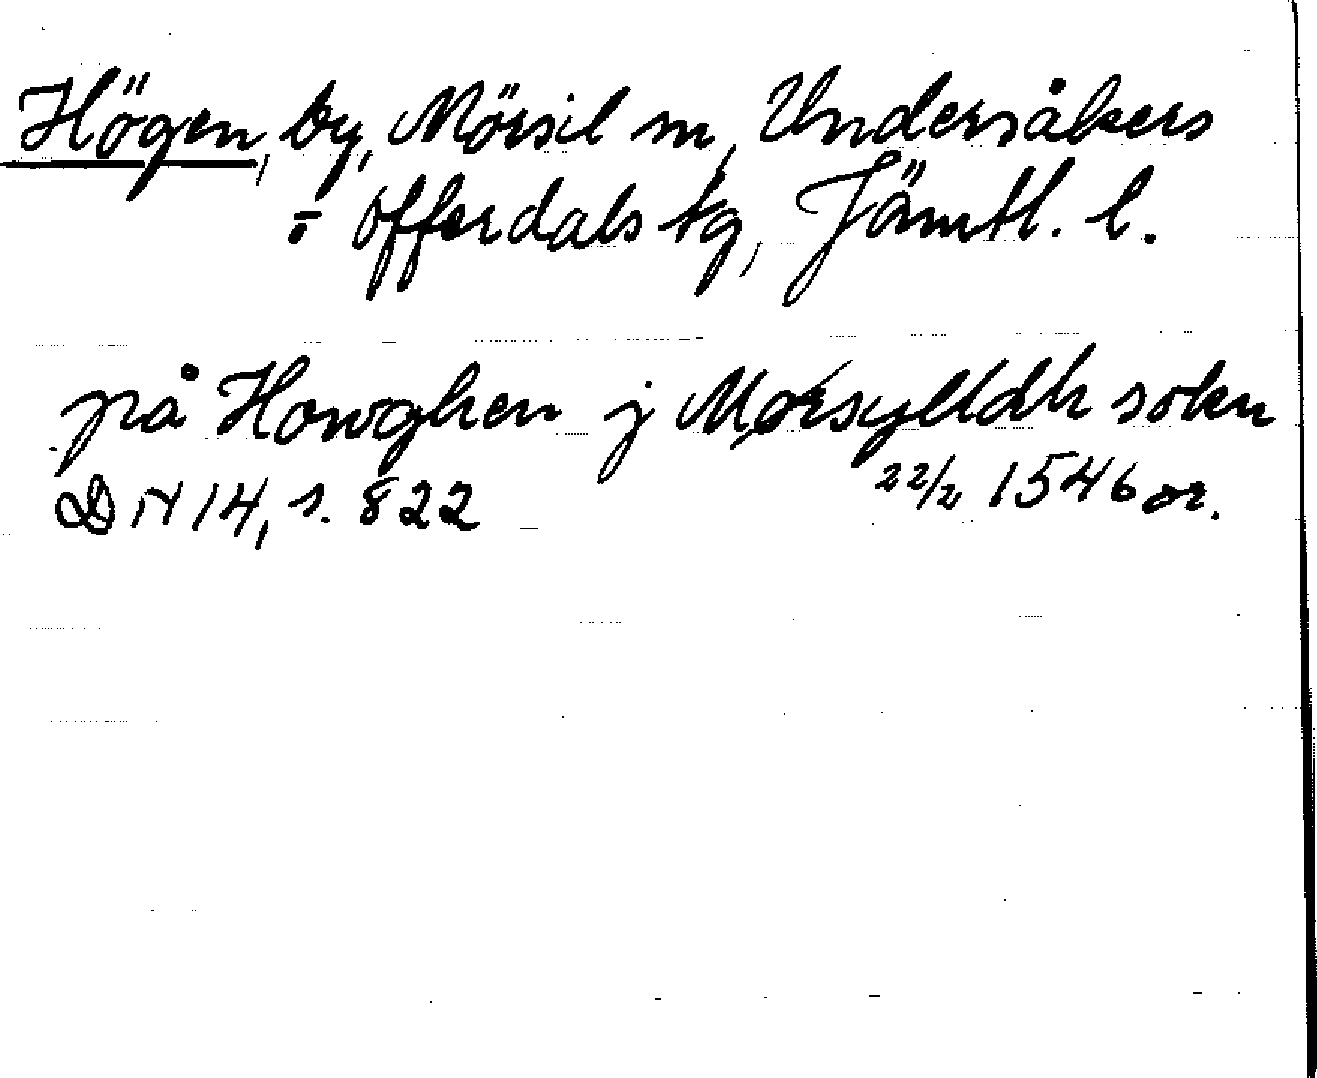 Högen, by, Mörsil sn, Undersåkers
o offerdals tg, Jämtl. l.
på Howghen j Mørsylldh sokn
DN 14, s. 822 22/2 1546 or.